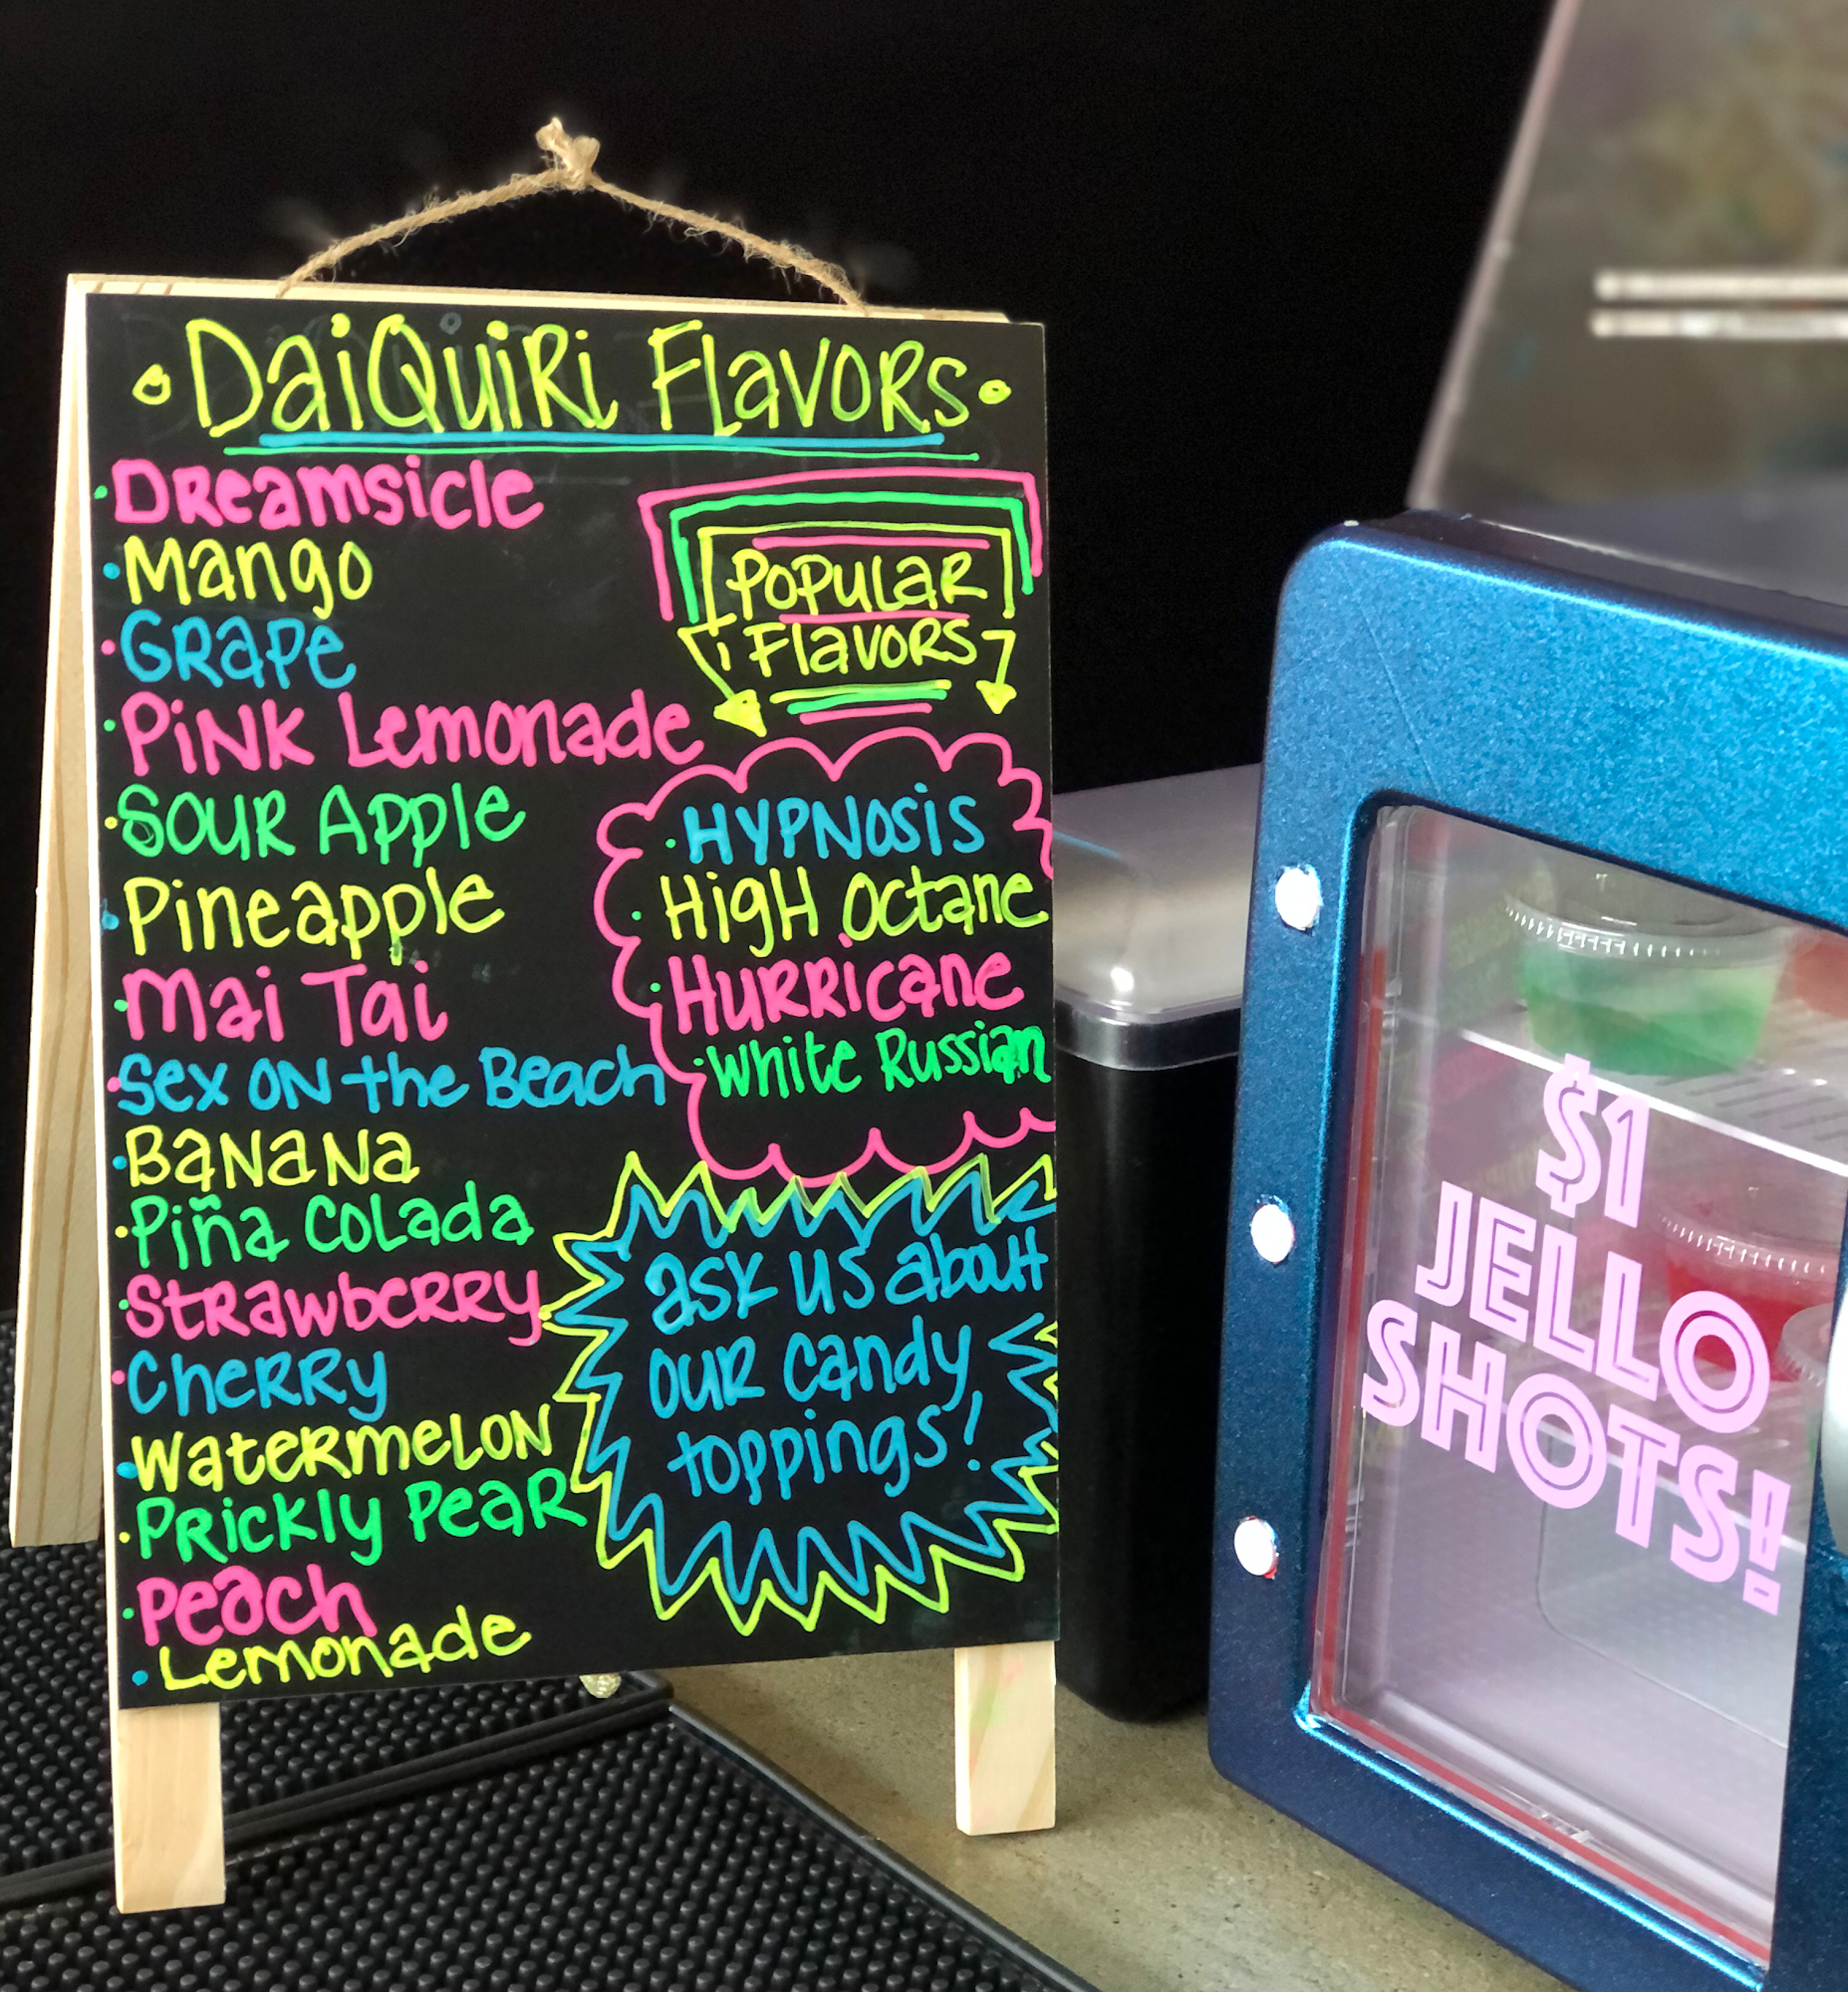 DaiQuiRi FlavoRs
DReamsicle
Mango
GRaPe
PiNK Lemonade
SOUR Apple
Pineapple
Mai Tai
Sex ON the Beach
BaNaNa
Piña Colada
StRawbeRRy
CheRRy
WateRmeLON
PRickly PeaR
Peach
Lemonade
POPULaR
FlavoRS
HYPNOSiS
HigH Octane
HuRRicane
White Russian
ask us about
ouR candy
toppings!
$1
JELLO
SHOTS!